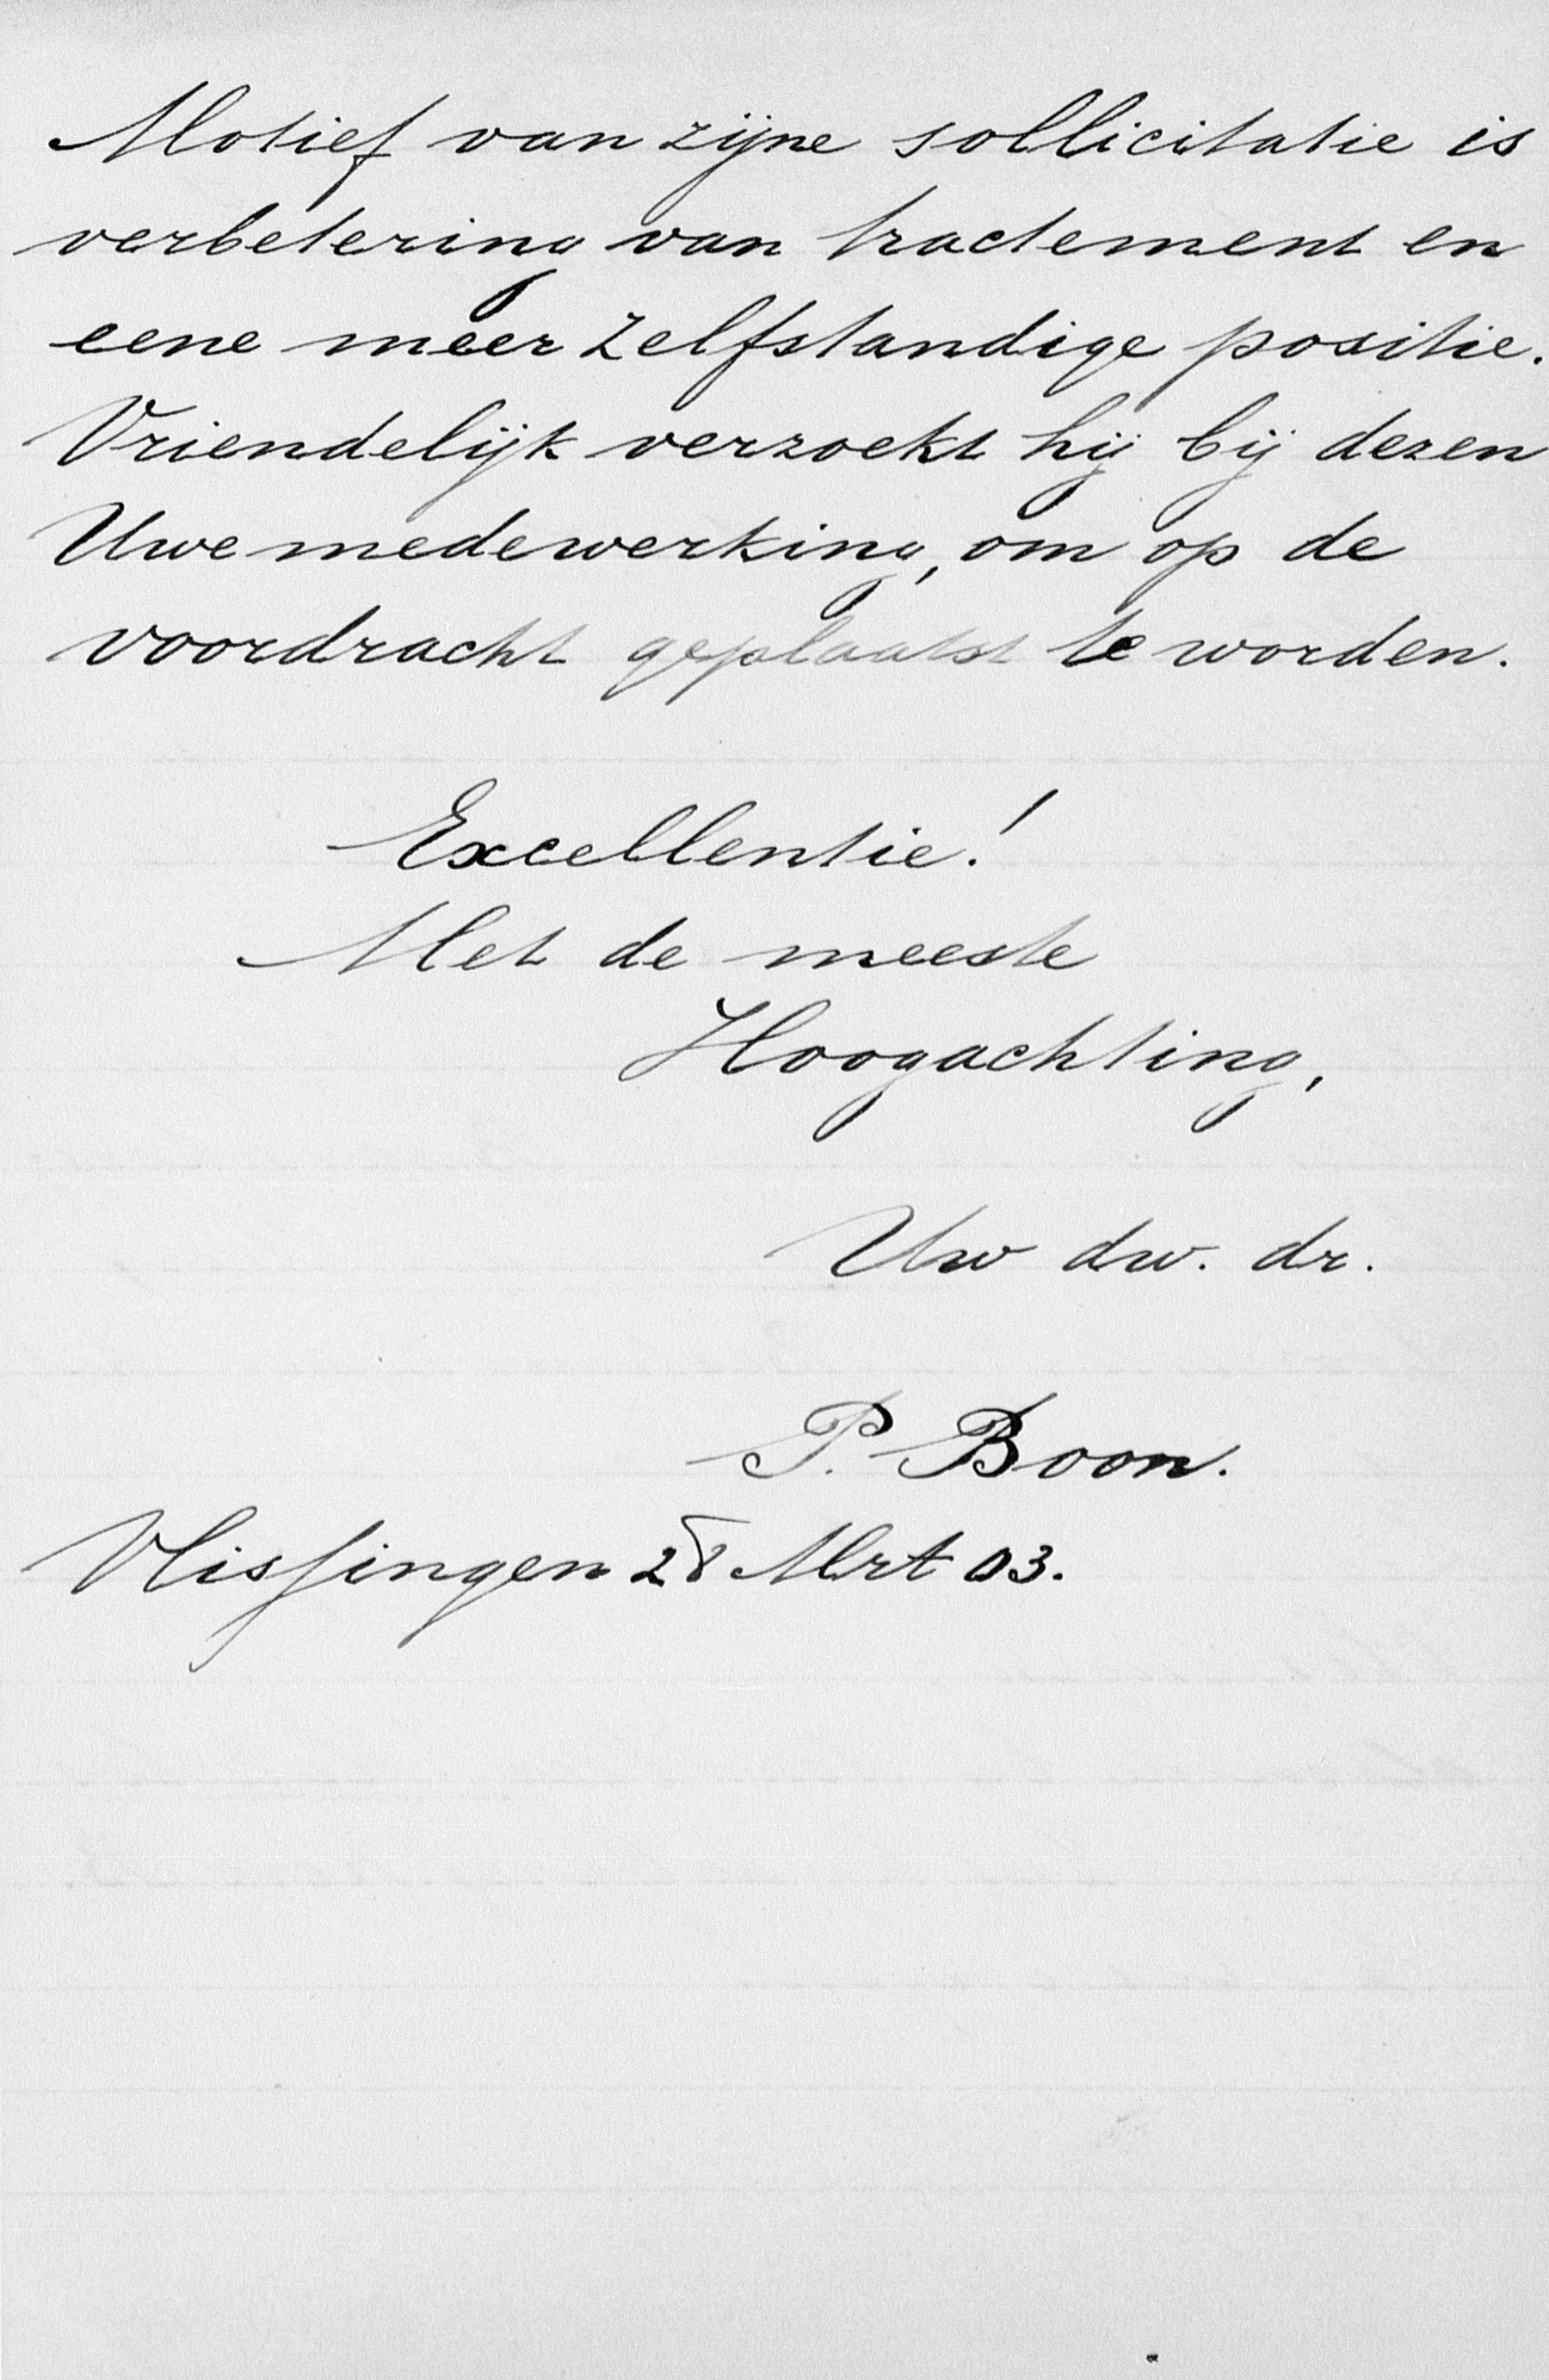 Motief van zijne sollicitatie is
verbetering van tractement en
eene meer zelfstandige positie.
Vriendelijk verzoekt hij bij dezen
Uwe medewerking, om op de
voordracht geplaatst te worden.
Excellentie!
Met de meeste
Hoogachting,
Uw dw. dr.
P. Boon.
Vlissingen 28 Mrt 03.